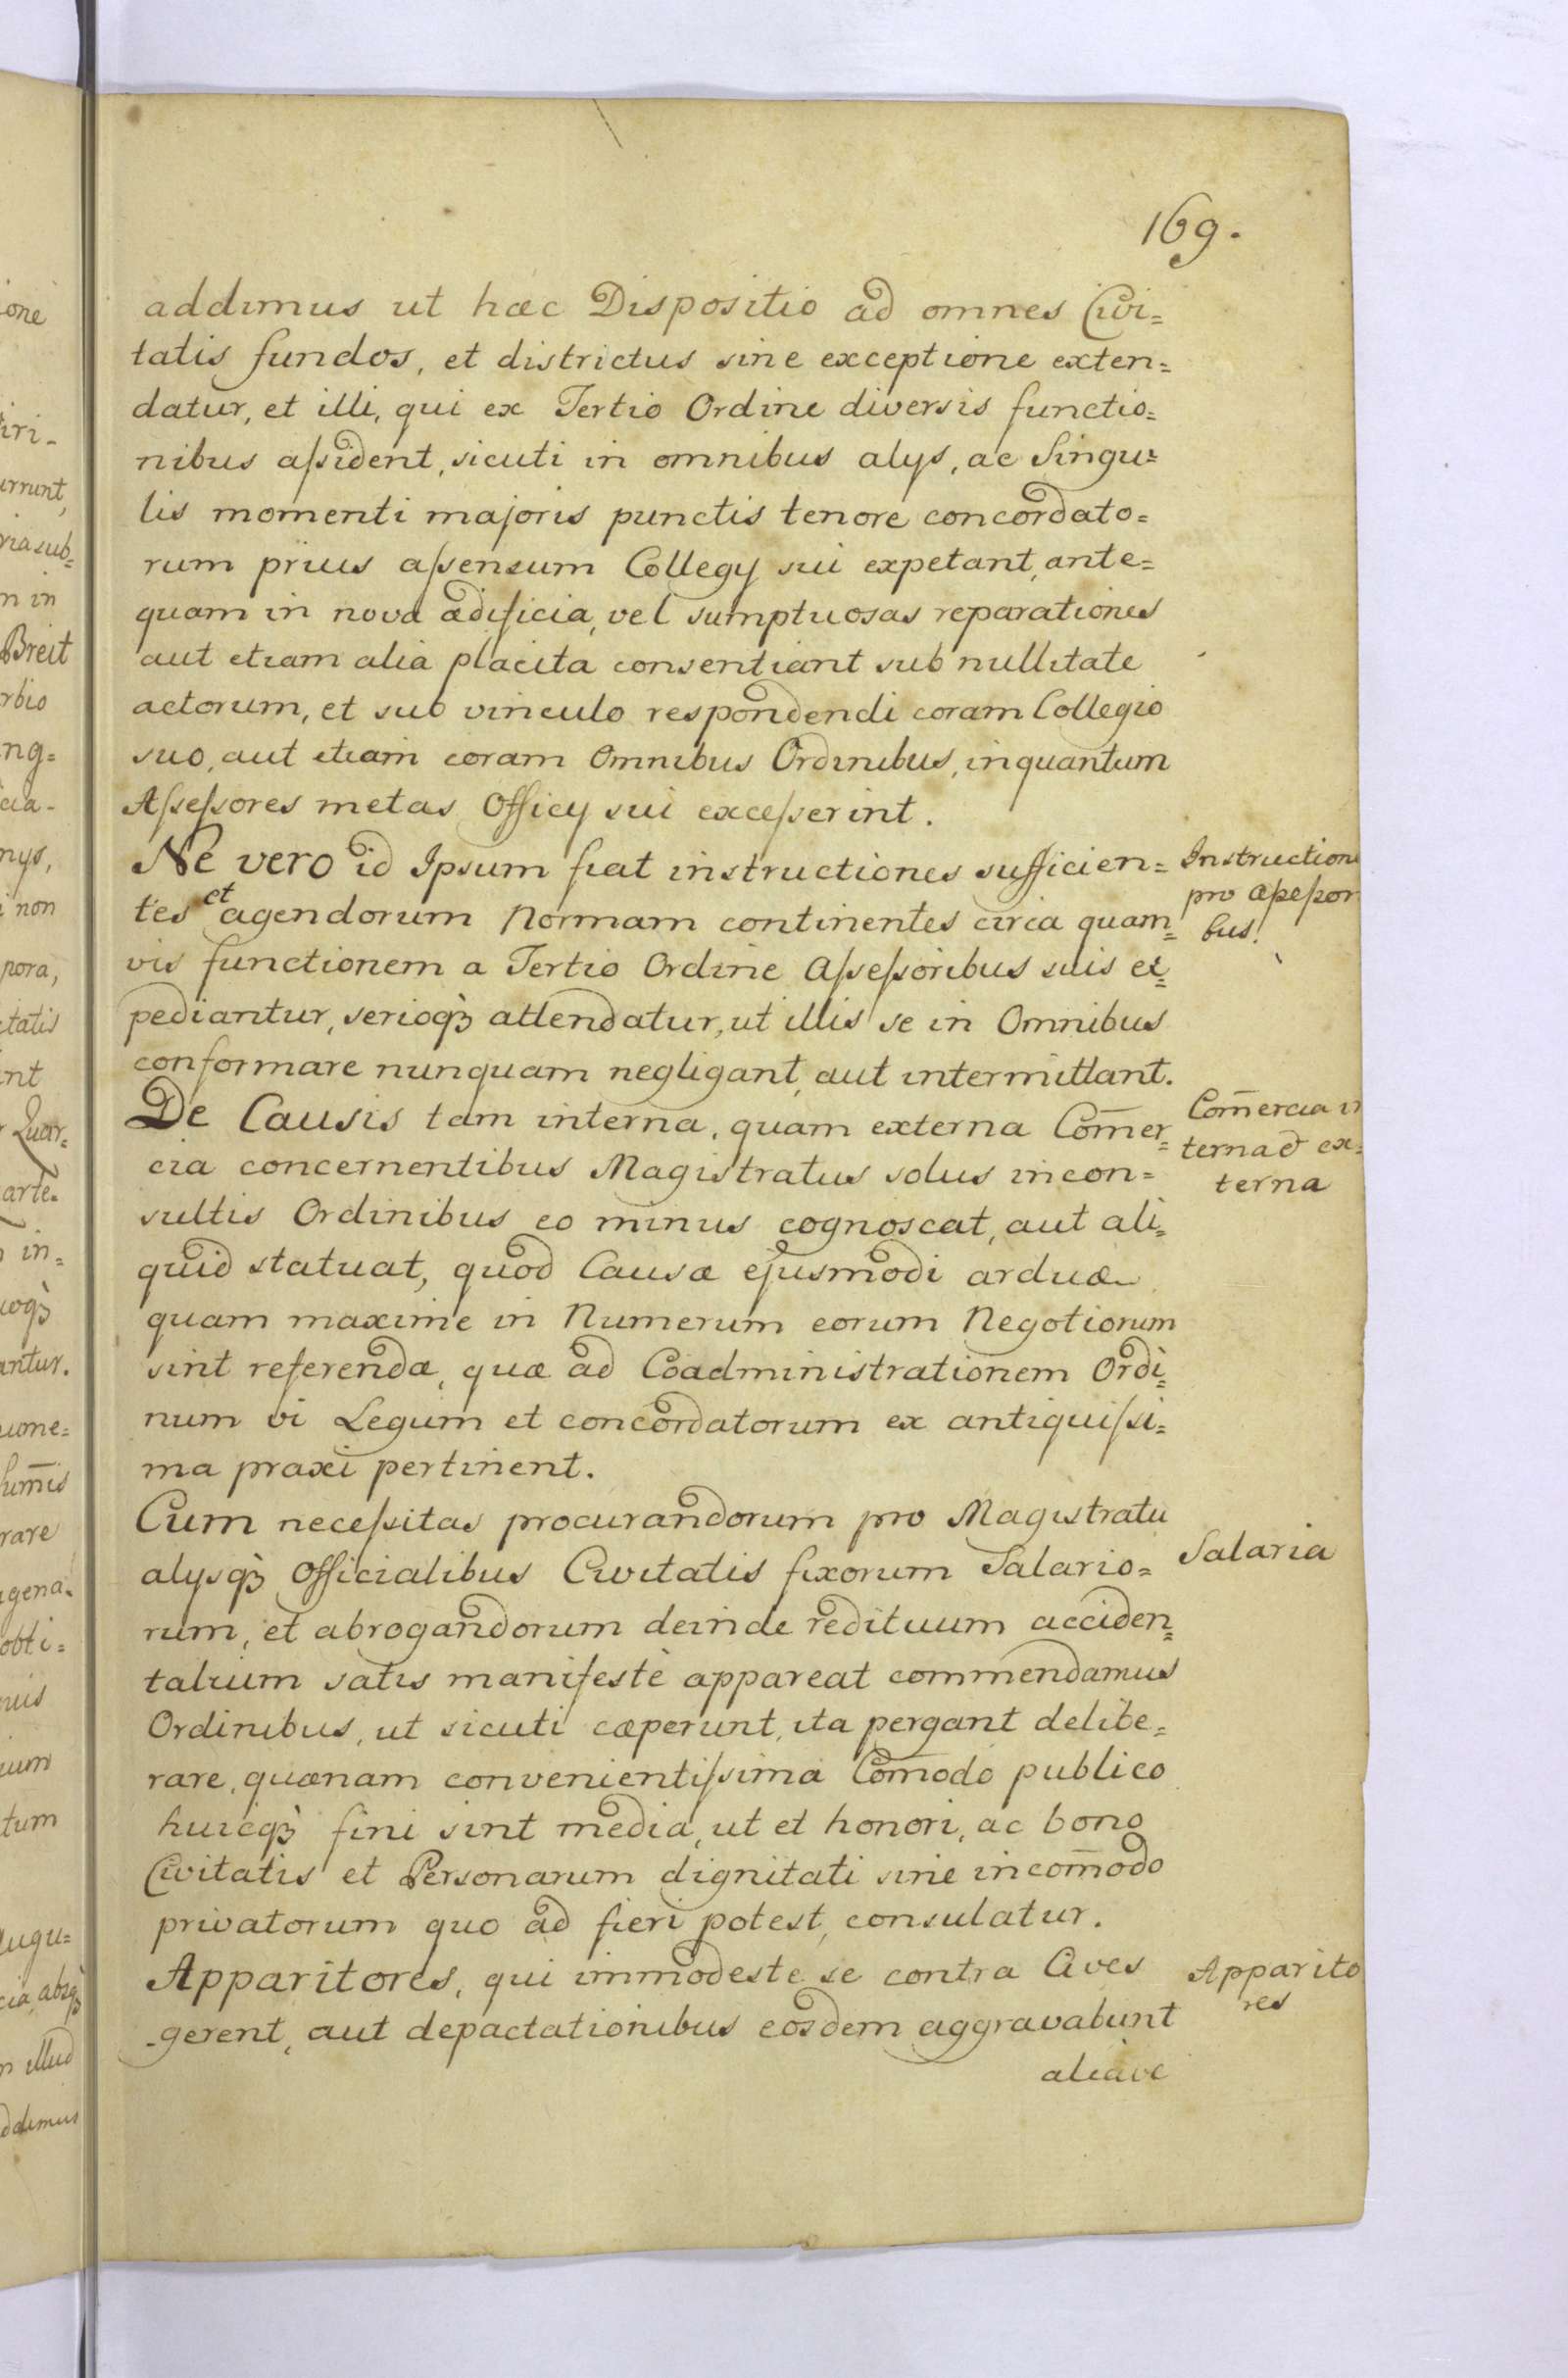 169.
addimus ut hæc Dispositio ad omnes Civi=
tatis fundos, et districtus sine exceptione exten=
datur, et illi, qui ex Tertio Ordine diversis functio=
nibus aſsident, sicuti in omnibus alys, ac Singu=
lis momenti majoris punctis tenore concordato=
rum prius aſsensum Collegy sui expetant, ante=
quam in nova ædificia, vel sumptuosas reparationes
aut etiam alia placita consentiant sub nullitate
actorum, et sub vinculo respondendi coram Collegio
suo, aut etiam coram Omnibus Ordinibus, inquantum
Aſseſsores metas Officy sui exceſserint.
Ne vero id Ipsum fiat instructiones sufficien=
tes et agendorum Normam continentes circa quam=
vis functionem a Tertio Ordine Aſseſsoribus suis ex=
pediantur, serioqȝ attendatur, ut illis se in Omnibus
conformare nunquam negligant, aut intermittant.
De Causis tam interna, quam externa Com̄er=
cia concernentibus Magistratus solus incon=
sultis Ordinibus eo minus cognoscat, aut ali=
quid statuat, quod Causæ ejusmodi arduæ
quam maxime in Numerum eorum Negotiorum
sint referendæ, quæ ad Coadministrationem Ordi=
num vi Legum et concordatorum ex antiquiſsi=
ma praxi pertinent.
Cum neceſsitas procurandorum pro Magistratu
alysqȝ Officialibus Civitatis fixorum Salario=
rum, et abrogandorum deinde redituum acciden=
talium satis manifestè appareat commendamus
Ordinibus, ut sicuti cæperunt, ita pergant delibe=
rare, quænam convenientiſsima Com̄odo publico
huicqȝ fini sint media, ut et honori, ac bono
Civitatis et Personarum dignitati sine incom̄odo
privatorum quo ad fieri potest, consulatur.
Apparitores, qui immodeste se contra Cives
gerent, aut depactationibus eosdem aggravabunt
aliave
Instruction
pro aſseſsor
bus.
Com̄ercia in
terna & ex=
terna
Salaria
Apparito
res
one
iri=
urrunt,
ria sub=
n in
Breit
rbio
ng=
cia-
nys,
i non
pora,
tatis
nt
Quar=
arte.
in=
antur.
ume=
rare
agena=
obti=
uis
ium
tum
Augu=
cia absqȝ
illud
ddimus